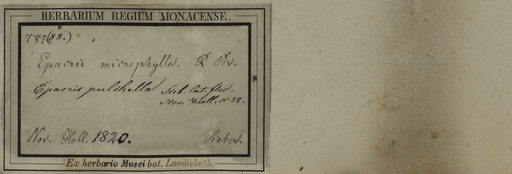 HERBARIUM REGIUM MONACENSE.
(88.)
Epacris microphylla. R Br.
Epacris pulchella Sieb. Cat. flor.
Nov. Holl. nr 88.
Nov. Holl. 1820. Sieber.
Ex herbario Musei bot. Landishuth.